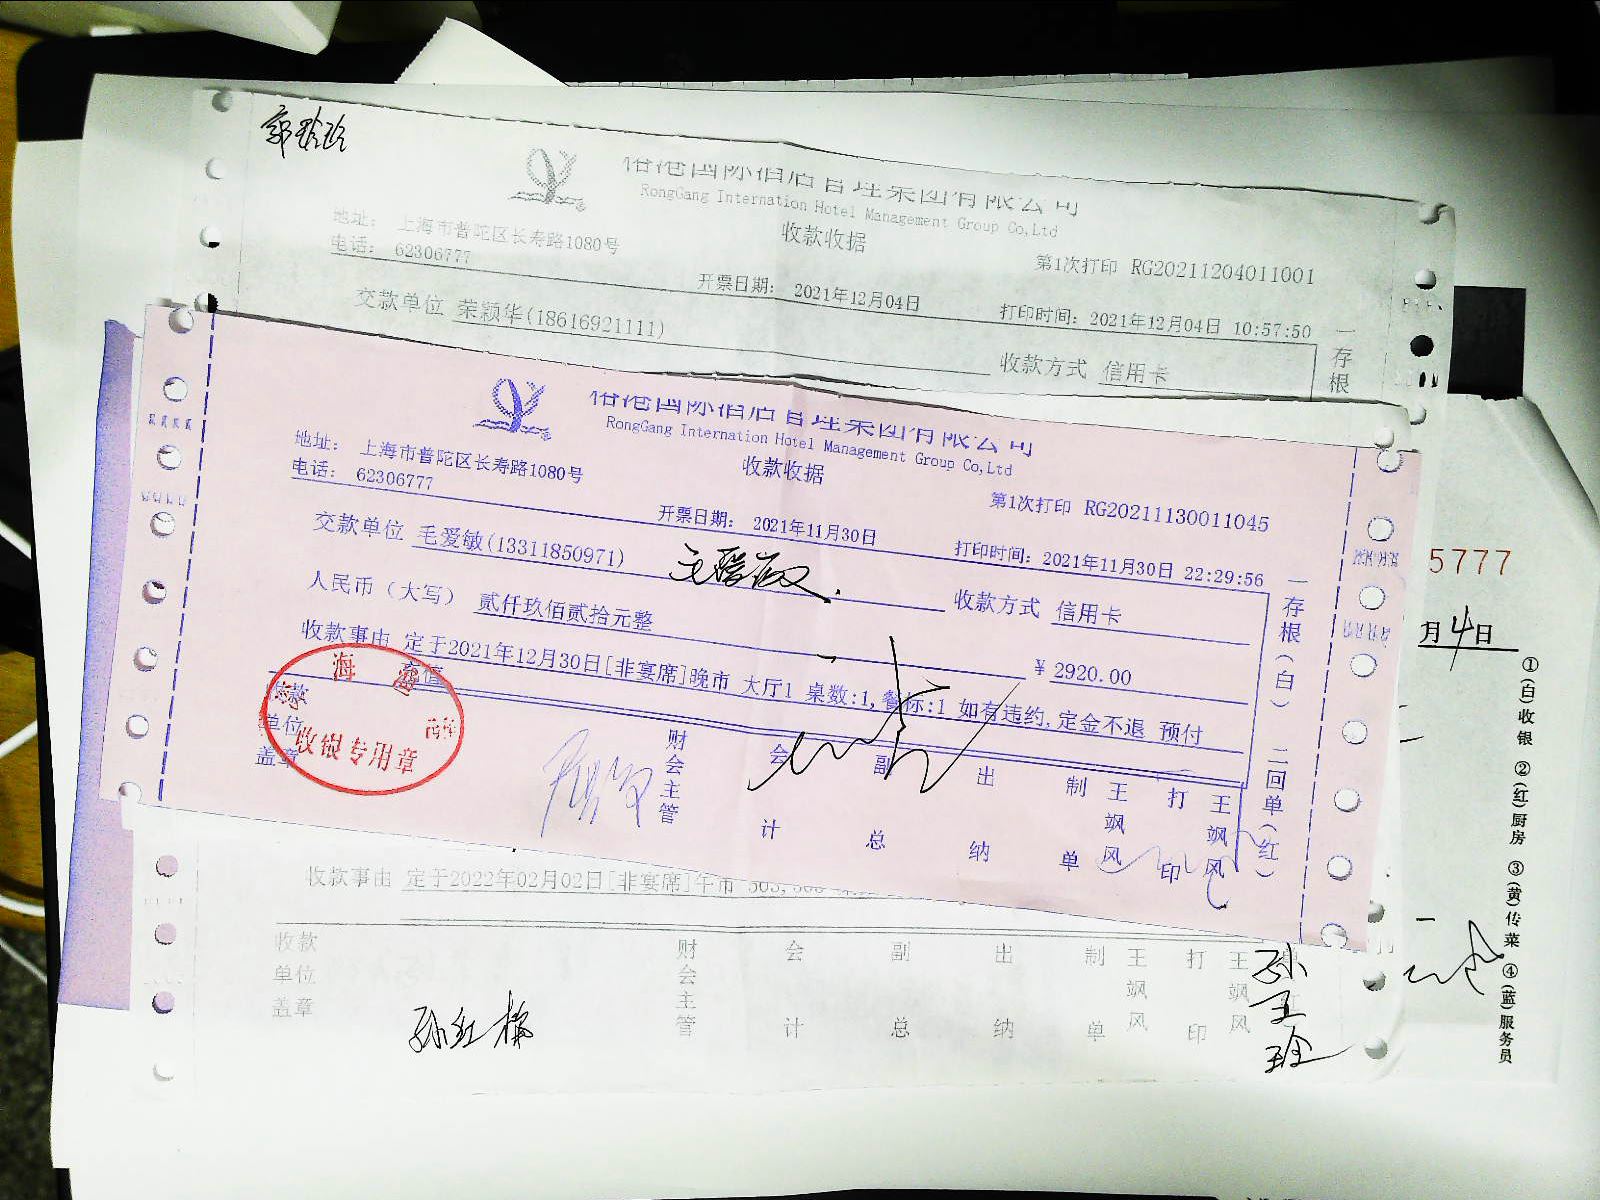 郭玲玲
RongGang Internation Hotel Management Group Co,Ltd
收款收据
地址： 上海市普陀区长寿路1080号
电话： 62306777
第1次打印 RG20211204011001
开票日期： 2021年12月04日
打印时间：2021年12月04日 10:57:50
交款单位 荣颖华(18616921111)
收款方式 信用卡
一存根
RongGang Internation Hotel Management Group Co,Ltd
收款收据
地址： 上海市普陀区长寿路1080号
电话： 62306777
第1次打印 RG20211130011045
开票日期： 2021年11月30日
打印时间：2021年11月30日 22:29:56
交款单位 毛爱敏(13311850971)
收款方式 信用卡
人民币（大写） 贰仟玖佰贰拾元整
¥ 2920.00
收款事由 定于2021年12月30日[非宴席]晚市 大厅1 桌数:1,餐标:1 如有违约,定金不退 预付
充值
收款单位盖章
收银专用章
财会主管 会计 副总 出纳 制单 王飒风 打印 王飒风
一存根(白) 二回单(红)
收款事由 定于2022年02月02日[非宴席]午市
收款单位盖章
财会主管 会计 副总 出纳 制单 王飒风 打印 王飒风
5777
月4日
①(白)收银 ②(红)厨房 ③(黄)传菜 ④(蓝)服务员